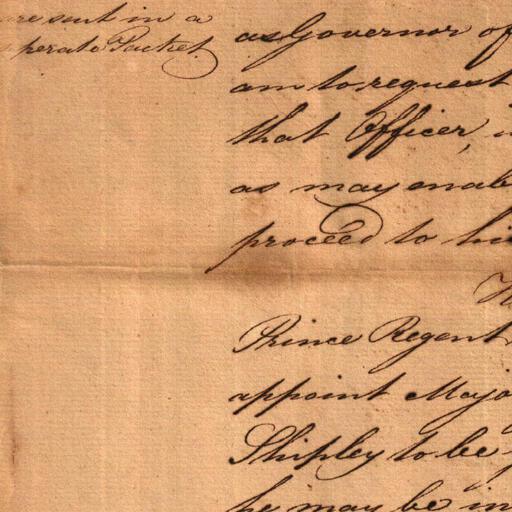 sent in a
Packet.
as Governor of
am to request
that Officer,
as may enab
proceed to hi
Prince Regent
appoint Majo
Shipley to be
he may be in